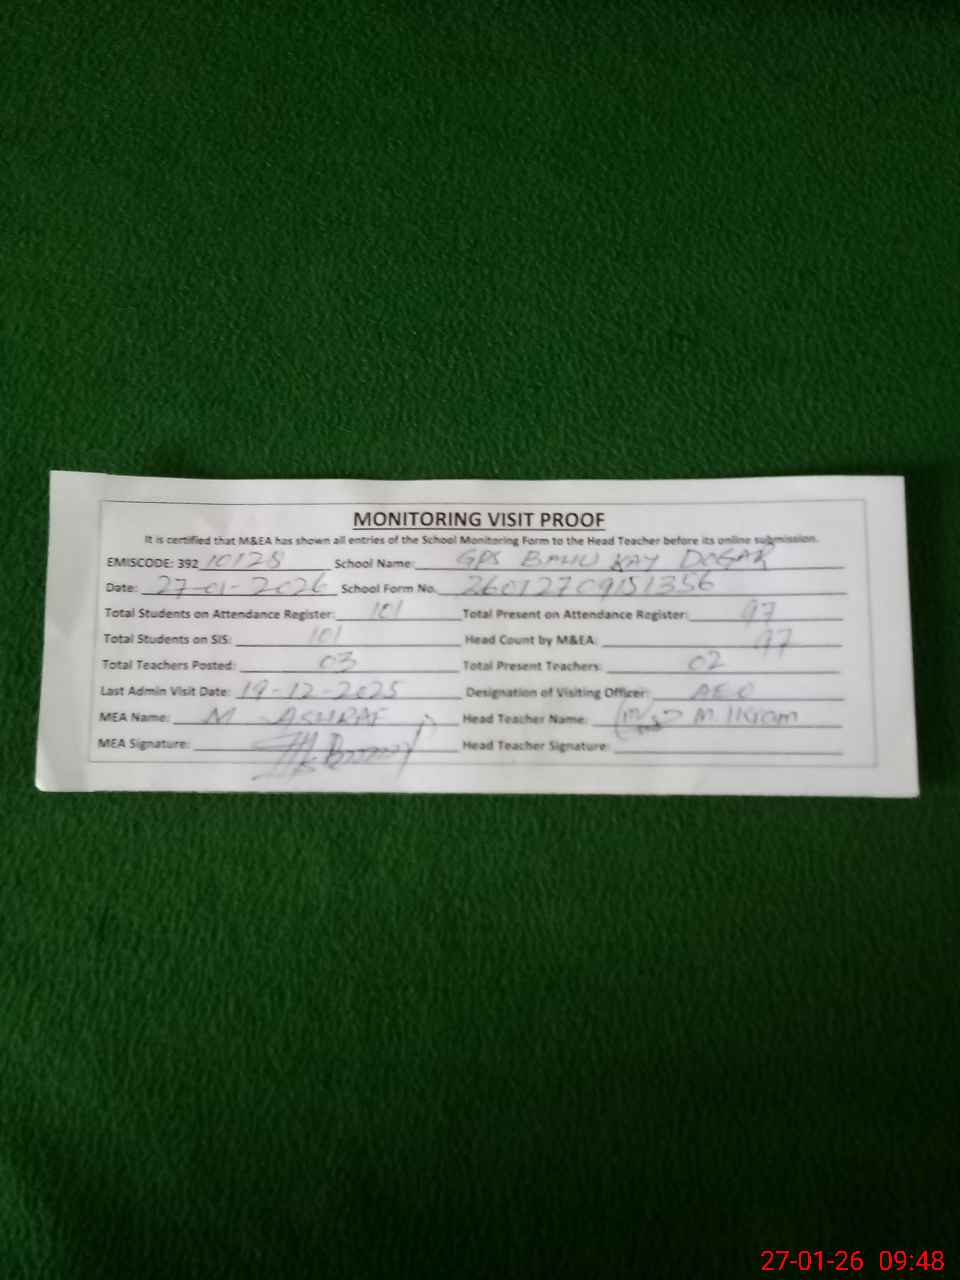 MONITORING VISIT PROOF
It is certified that M&EA has shown all entries of the School Monitoring Form to the Head Teacher before its online submission.
EMISCODE: 392 10128 School Name: GPS BAHU KAY DOGAR
Date: 27-01-2026 School Form No.
Total Students on Attendance Register: 101 Total Present on Attendance Register: 97
Total Students on SIS: 101 Head Count by M&EA: 97
Total Teachers Posted: 03 Total Present Teachers: 02
Last Admin Visit Date: 19-12-2025 Designation of Visiting Officer: AEO
MEA Name: M ASHRAF Head Teacher Name: M. Ikram
MEA Signature: Head Teacher Signature:
27-01-26 09:48